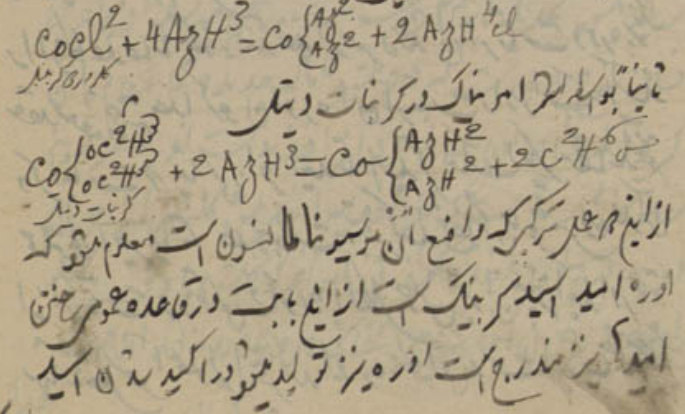 CoCl² + 4AzH³ = Co{AzH² AzH² + 2AzH⁴Cl
ثانیاً بواسطه اثر امونیاک در کربنات دیتیل
Co{OC²H⁵ OC²H⁵ + 2AzH³ = Co{AzH² AzH² + 2C²H⁶O
کربنات دیتیل
از این عمل ترکیبی که واضع آن موسیو ناطانسون است معلوم میشود که
اوره امید اسید کربنیک است از این بابت در قاعده عمومی ساختن
امیدها نیز مندرج است اوره نیز تولید میشود در اکسید شدن اسید